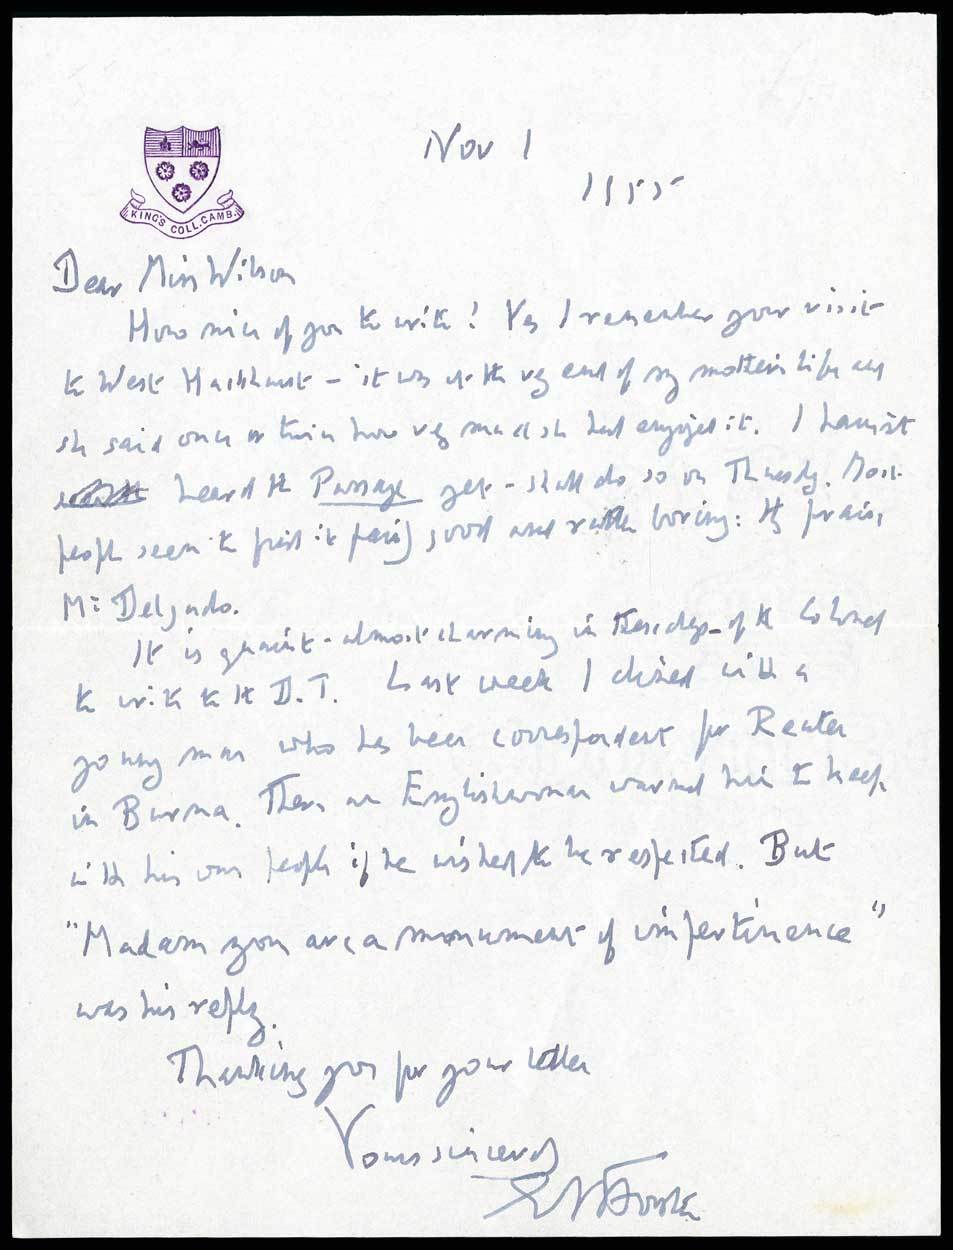 KING'S COLL. CAMB.
Nov 1
1955
Dear Miss Wilson
How nice of you to write! Yes I remember your visit
to West Hackhurst - it was at the very end of my mother's life and
she said once or twice how very much she had enjoyed it. I haven't
heard the Passage yet - shall do so on Thursday. Most
people seem to find it fairly good and rather boring: they praise
Mr Delgado.
It is quaint - almost charming in these days - of the Colonel
to write to the D.T. Last week I dined with a
young man who has been correspondent for Reuter
in Burma. There an Englishwoman warned him to keep
with his own people if he wished to be respected. But
"Madam you are a monument of impertinence"
was his reply.
Thanking you for your letter
Yours sincerely
EM Forster